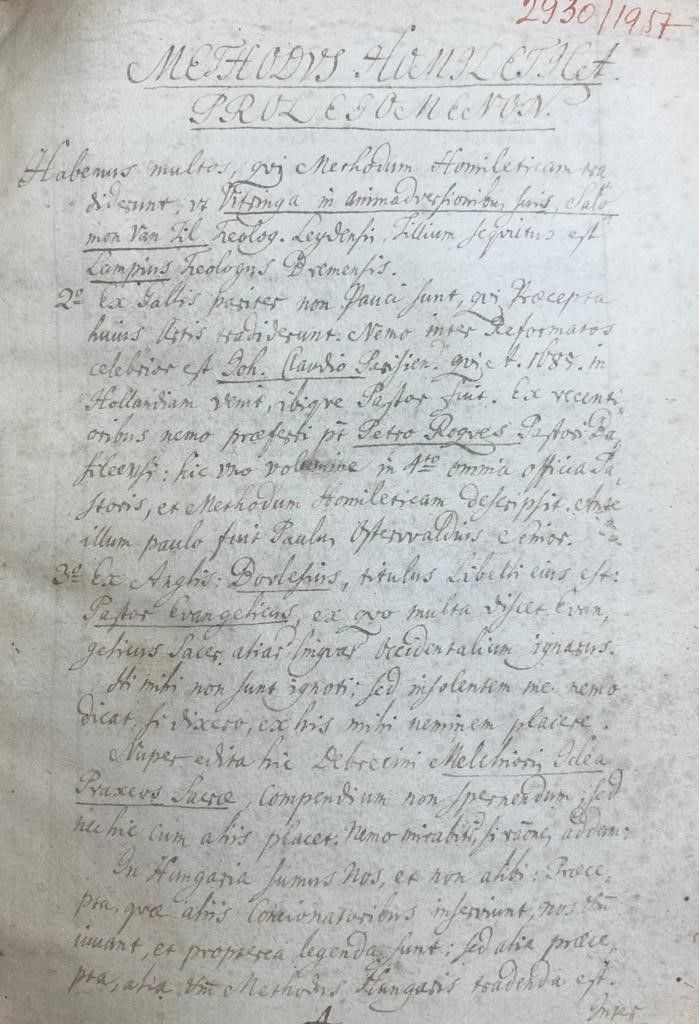 2930/1957
METHODVS HOMILETICA.
PROLEGOMENON.
Habemus multos, qvi Methodum Homileticam tra
diderunt, vt Vitringa in animadversionibus suis, Salo
mon Van Til Theolog. Leydensis, Tillium seqvutus est
Lampius Theologus Bremensis.
2º Ex Gallis pariter non pauci sunt, qvi Præcepta
huius Artis tradiderunt. Nemo inter Reformatos
celebrior est Joh. Claudio Parisien. qvi A. 1685. in
Hollandiam venit, ibiqve Pastor fuit. Ex recenti
oribus nemo præferri pt Petro Roqves Pastori Ba,
sileensi: hic vno volumine in 4to omnia officia Pa
storis, et Methodum Homileticam descripsit. Ante
illum paulo fuit Paulus Ostervvaldius Senior.
3º Ex Anglis: Dovlesius, titulus Libelli eius est:
Pastor Evangelicus, ex qvo multa discet Evan,
gelicus Sacer, alias lingvar Occidentalium ignarus.
Hi mihi non sunt ignoti; sed insolentem me nemo
dicat, si dixero, ex his mihi neminem placere.
Nuper edita hic Debrecini Melchioris Idea
Praxeos Sacræ, Compendium non spernendum; sed
nec hic cum aliis placet. Nemo mirabitr, si raōnes addam;
In Hungaria sumus Nos, et non alibi: Præce,
pta, qvæ aliis Concionatoribus inserviunt, nos
iuvant, et propterea legenda sunt; sed alia præce,
pta, alia Methodus Hungaris tradenda est.
Inter